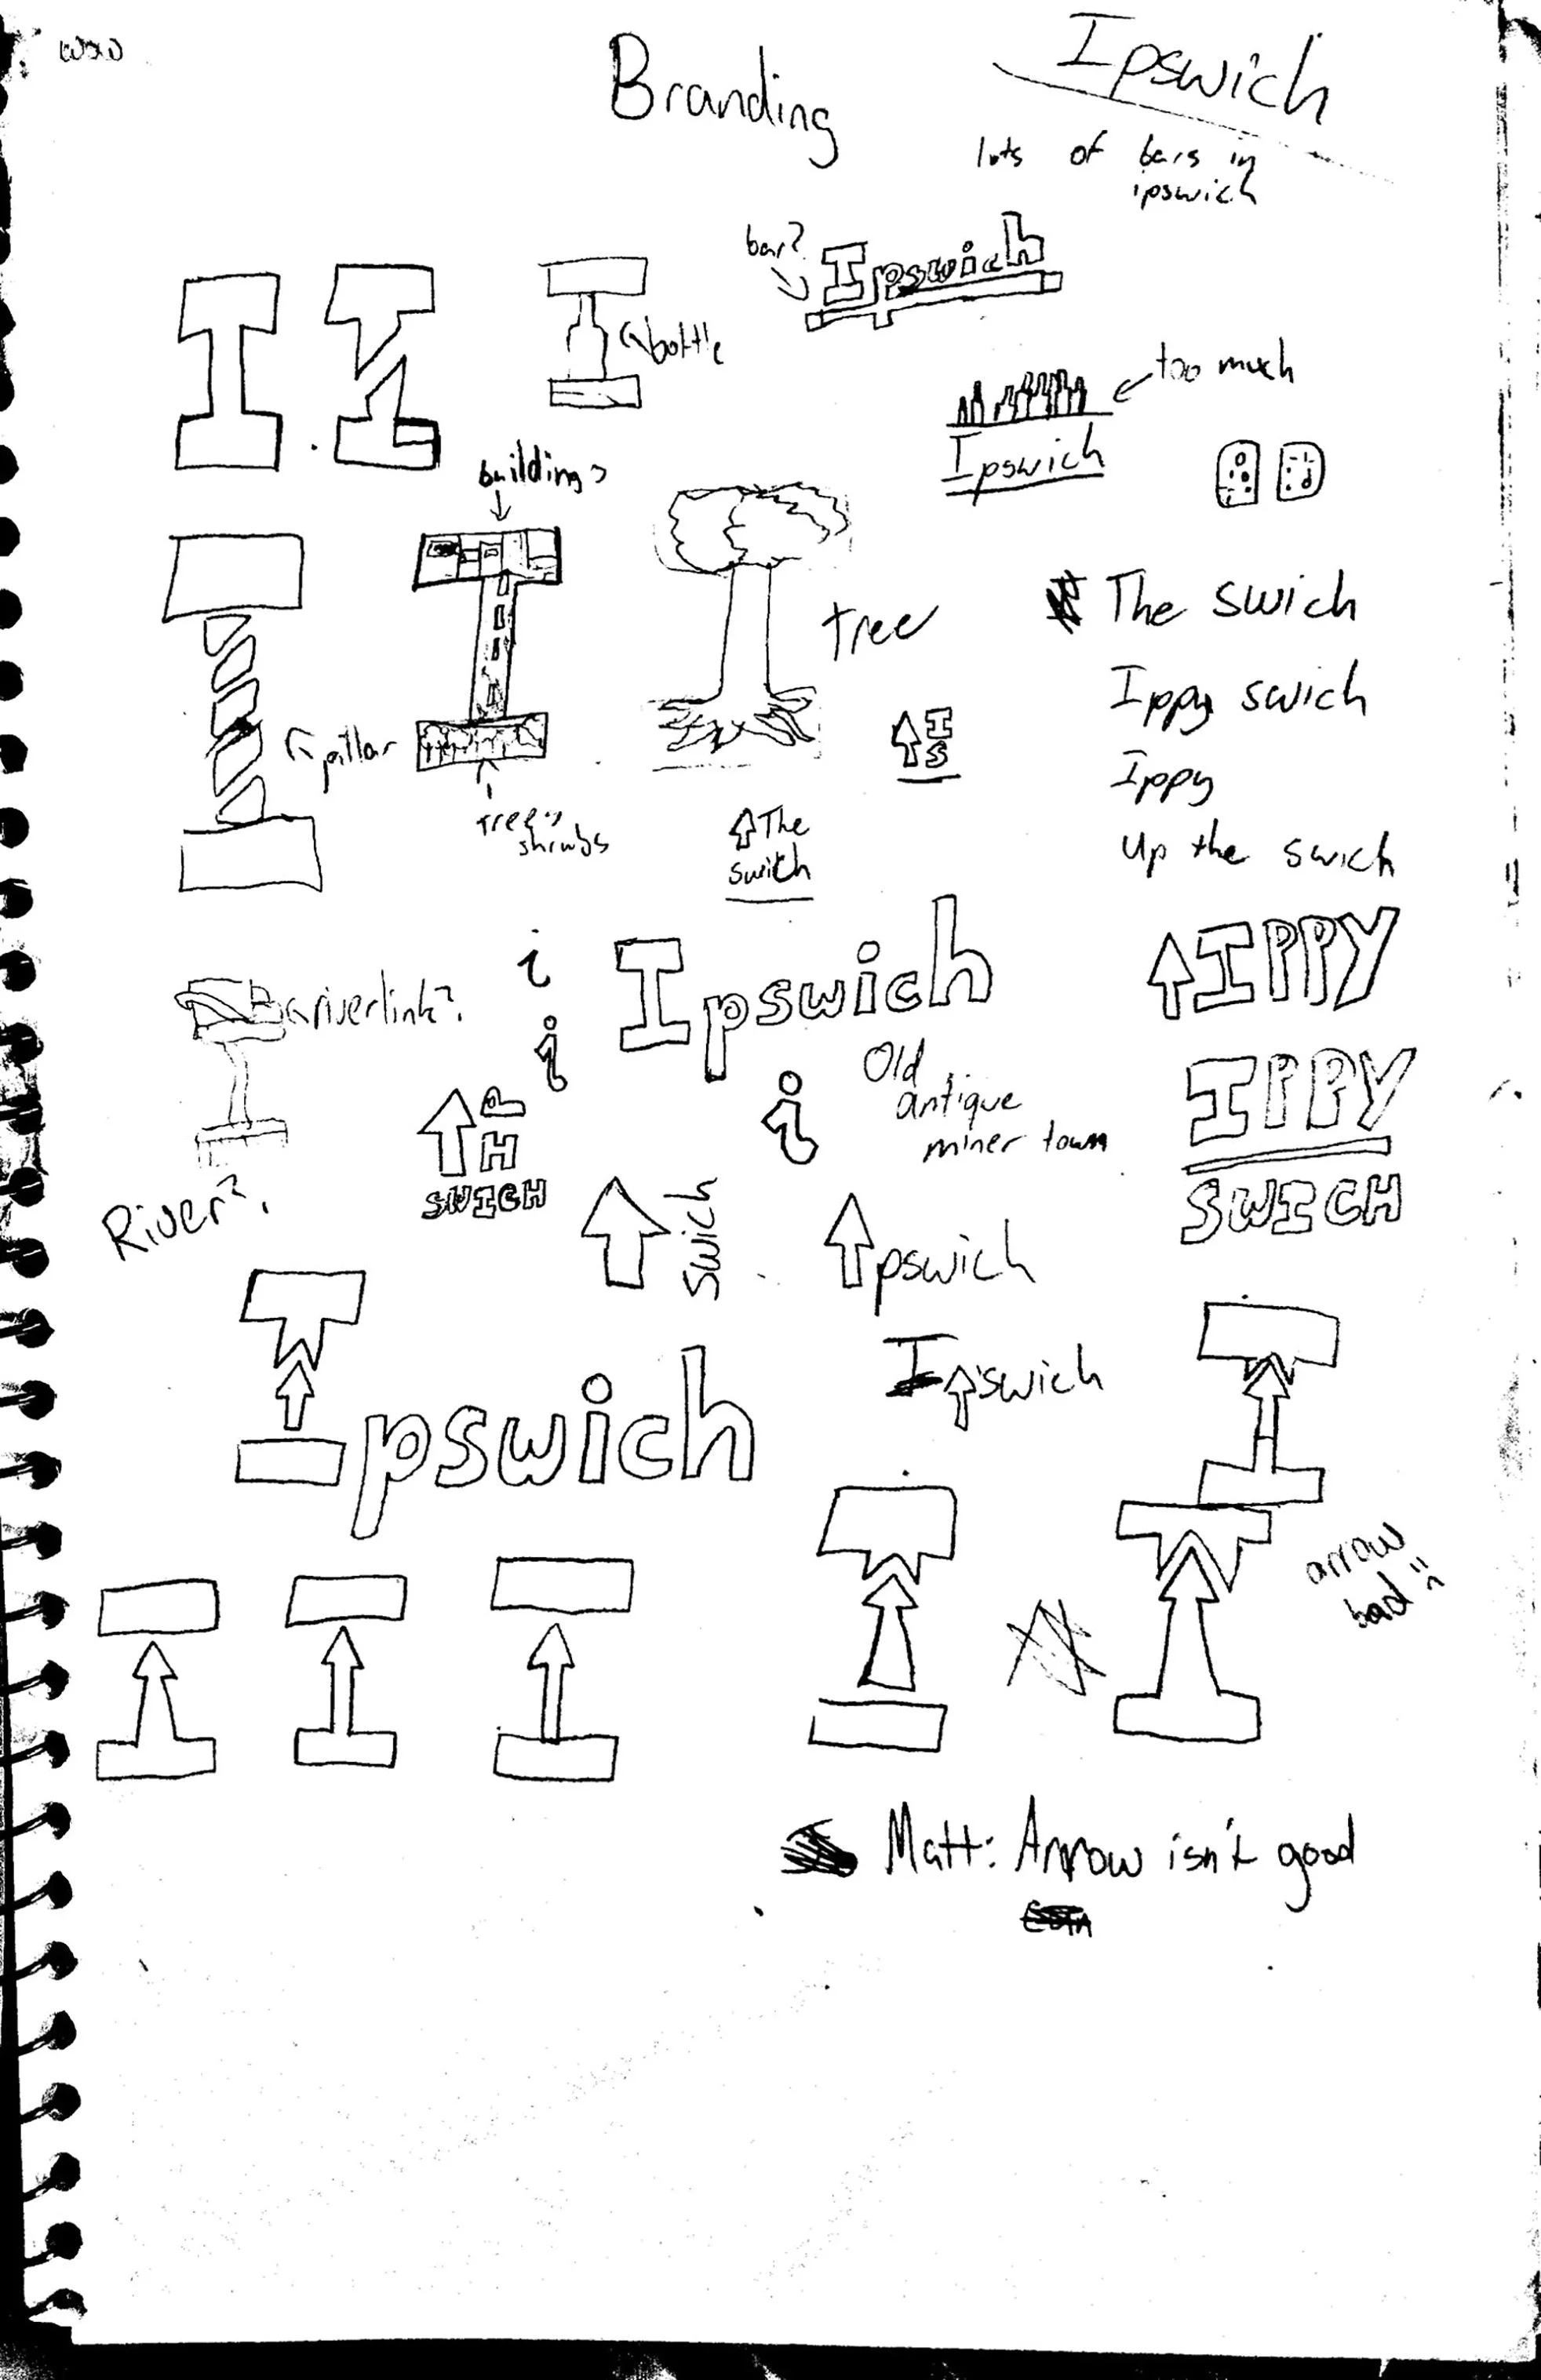 wow
Branding
Ipswich
lots of bars in
ipswich
bar?
Ipswich
bottle
too much
Ipswich
buildings
tree
pillar
trees,
shrubs
The swich
Ippy swich
Ippy
up the swich
I
S
The
swich
riverlink?
i
Ipswich
IPPY
i
Old
antique
miner town
i
IPPY
SWICH
H
SWICH
River?
swich
pswich
pswich
I swich
arrow
bad
Matt: Arrow isn't good